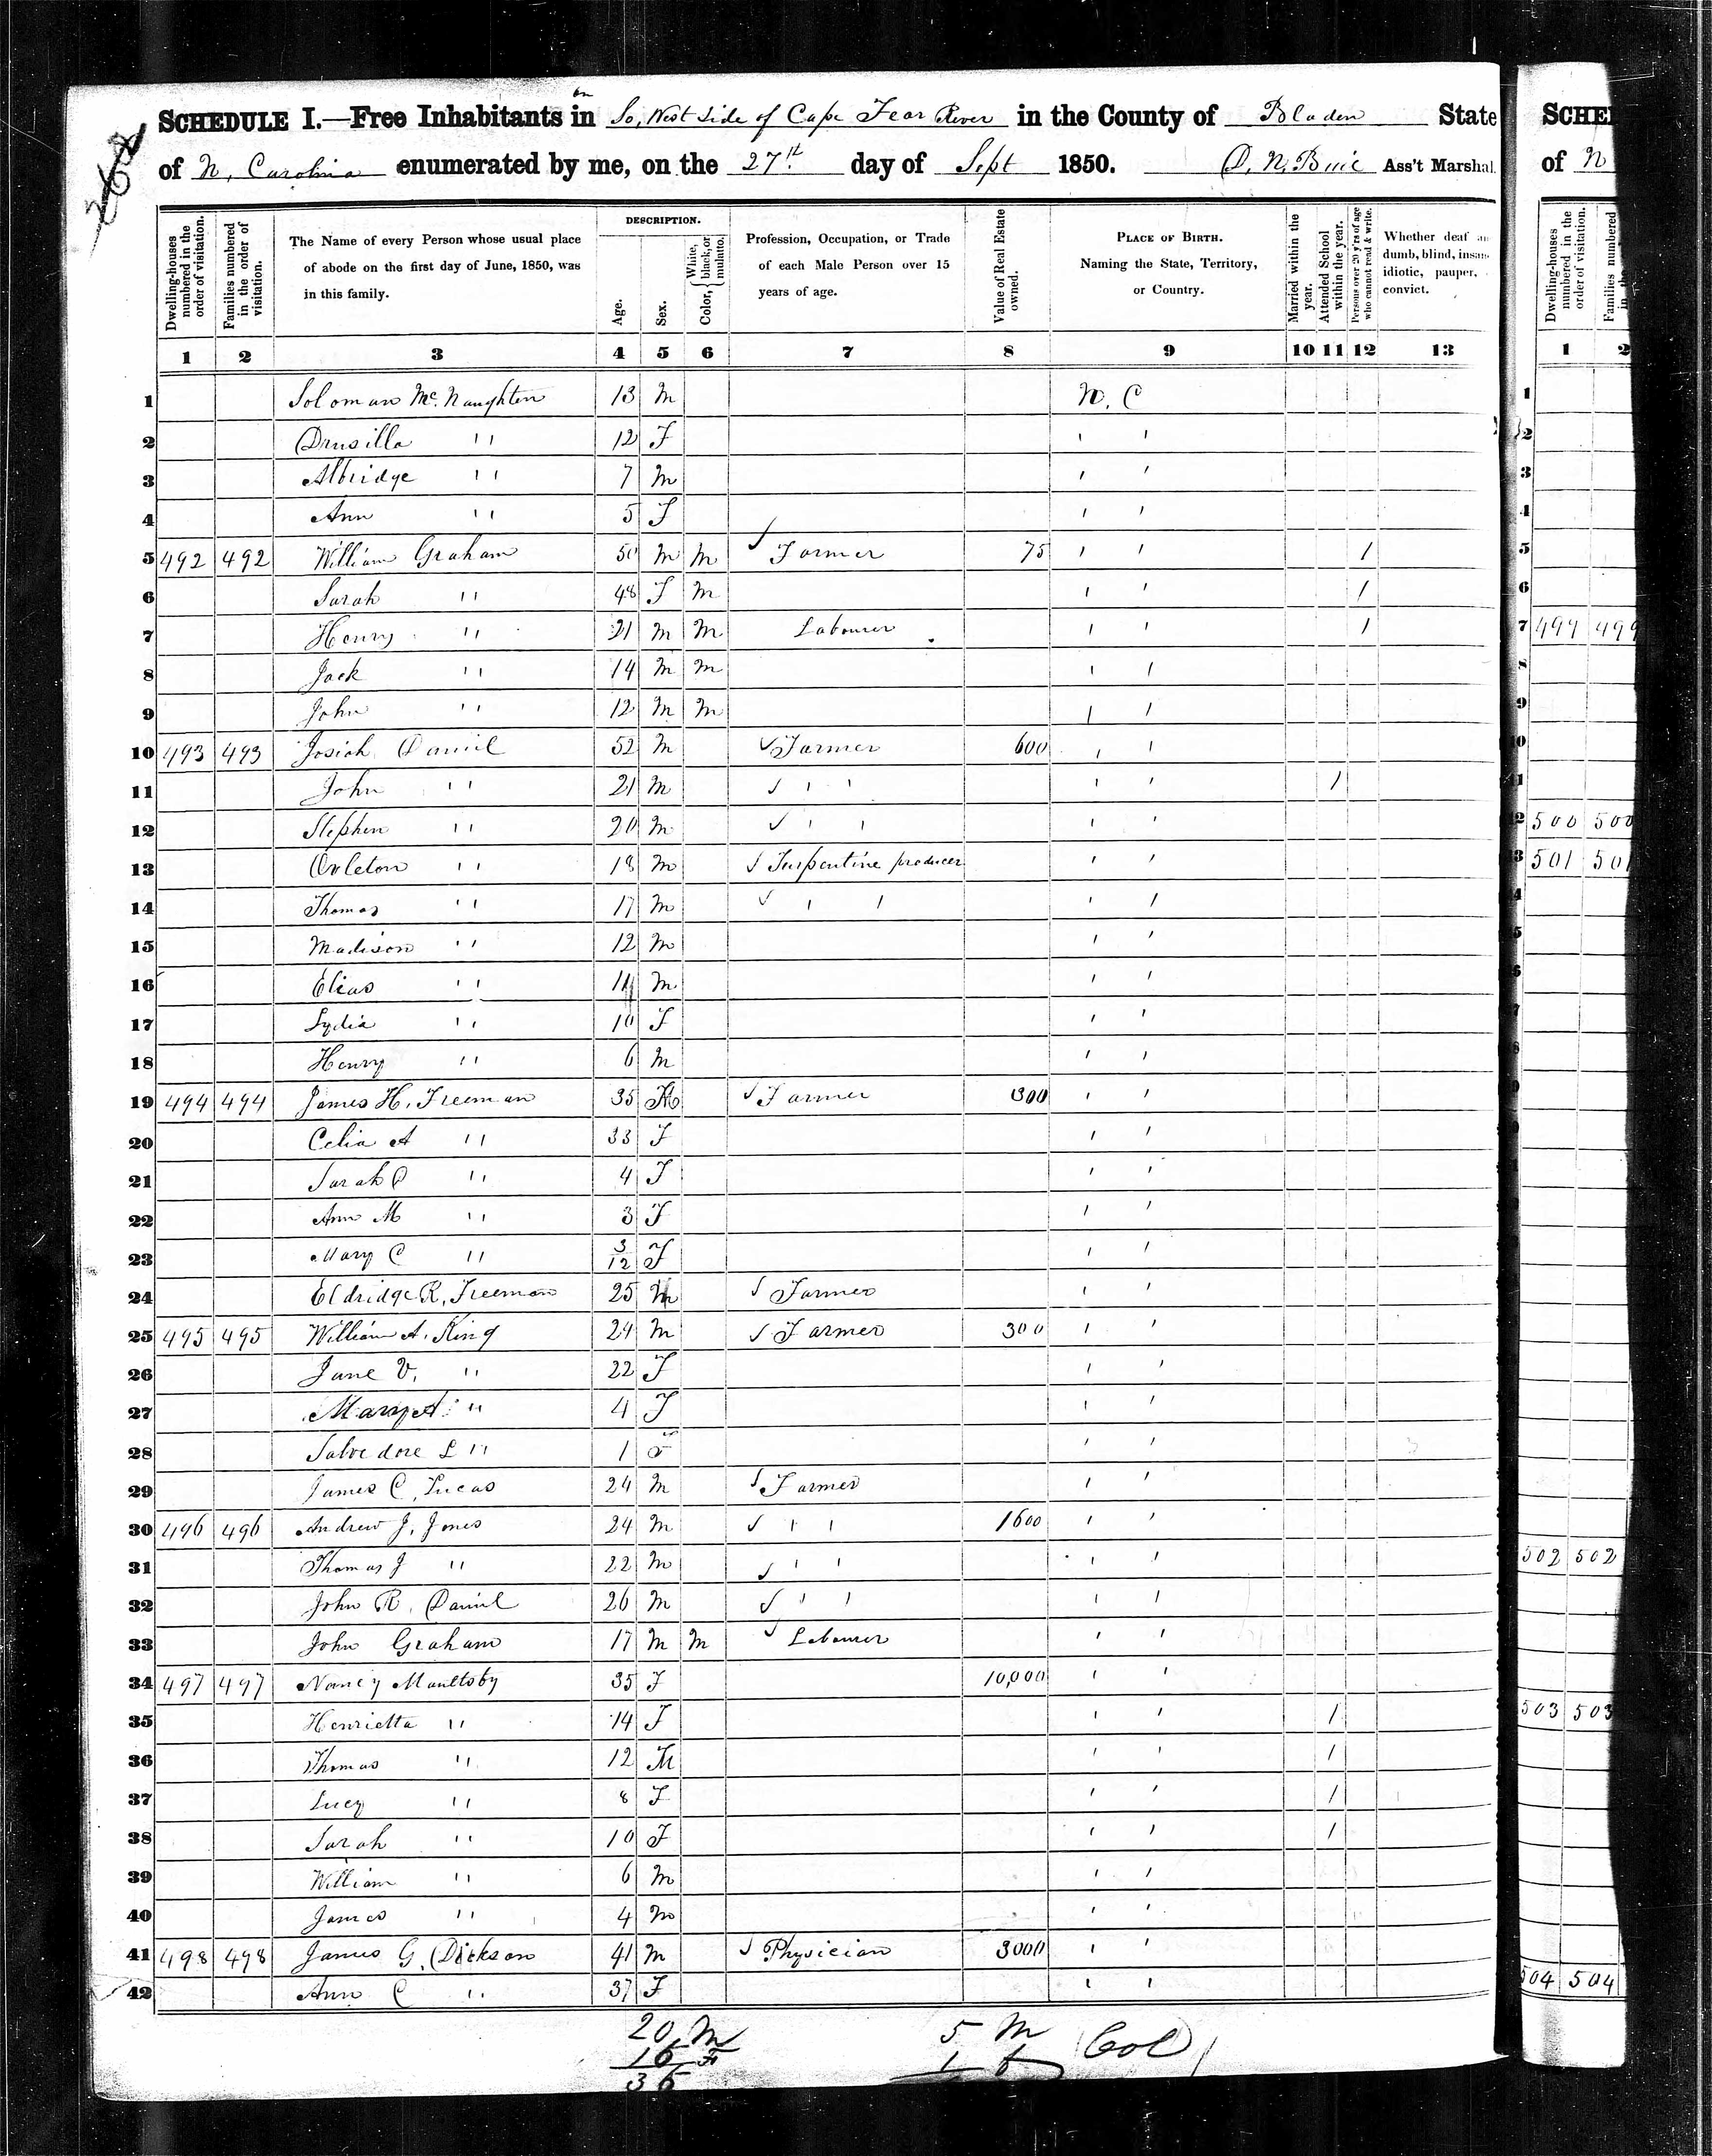 on
SCHEDULE I.—Free Inhabitants in So, West Side of Cape Fear River in the County of Bladen State
of N. Carolina enumerated by me, on the 27th. day of Sept 1850. D. N. Buie Ass't Marshal.
Dwelling-houses numbered in the order of visitation.
Families numbered in the order of visitation.
The Name of every Person whose usual place of abode on the first day of June, 1850, was in this family.
DESCRIPTION.
Age.
Sex.
Color, White, black, or mulatto.
Profession, Occupation, or Trade of each Male Person over 15 years of age.
Value of Real Estate owned.
PLACE OF BIRTH.
Naming the State, Territory, or Country.
Married within the year.
Attended School within the year.
Persons over 20 y'rs of age who cannot read & write.
Whether deaf an
dumb, blind, insan
idiotic, pauper,
convict.
1 2 3 4 5 6 7 8 9 10 11 12 13
1 Soloman McNaughten 13 M N. C
2 Drusilla " 12 F ' '
3 Albridge " 7 M ' '
4 Ann " 5 F ' '
5 492 492 William Graham 50 M M ✓ Farmer 75 ' ' 1
6 Sarah " 48 F M ' ' 1
7 Henry " 21 M M Labourer ' ' 1
8 Jack " 14 M M ' '
9 John " 12 M M ' '
10 493 493 Josiah Daniel 52 M ✓ Farmer 600 ' '
11 John " 21 M ✓ ' ' ' ' 1
12 Stephen " 20 M ✓ ' ' ' '
13 Orleton " 18 M ✓ Turpentine producer ' '
14 Thomas " 17 M ✓ ' ' ' '
15 Madison " 12 M ' '
16 Elias " M ' '
17 Lydia " 10 F ' '
18 Henry " 6 M ' '
19 494 494 James H. Freeman 35 M ✓ Farmer 300 ' '
20 Celia A " 33 F ' '
21 Sarah C " 4 F ' '
22 Ann M " 3 F ' '
23 Mary C " 3/12 F ' '
24 Eldridge R, Freeman 25 M ✓ Farmer ' '
25 495 495 William A. King 29 M ✓ Farmer 300 ' '
26 Jane V. " 22 F ' '
27 Mary A " 4 F ' '
28 Salvedore L " 1 ' '
29 James C, Lucas 24 M ✓ Farmer ' '
30 496 496 Andrew J, Jones 24 M ✓ ' ' 1600 ' '
31 Thomas J " 22 M ✓ ' ' ' '
32 John R. Daniel 26 M ✓ ' ' ' '
33 John Graham 17 M M ✓ Labourer ' '
34 497 497 Nancy Maultsby 35 F 10,000 ' '
35 Henrietta " 14 F ' ' 1
36 Thomas " 12 M ' ' 1
37 Lucy " 8 F ' ' 1
38 Sarah " 10 F ' ' 1
39 William " 6 M ' '
40 James " 4 M ' '
41 498 498 James G. Dickson 41 M ✓ Physician 3000 ' '
42 Ann C " 37 F ' '
20 M 5 M Col
16 F 1 f
36
SCHE
of N
Dwelling-houses numbered in the order of visitation.
Families numbered
1 2
499 499
500 500
501 501
502 502
503 503
504 504